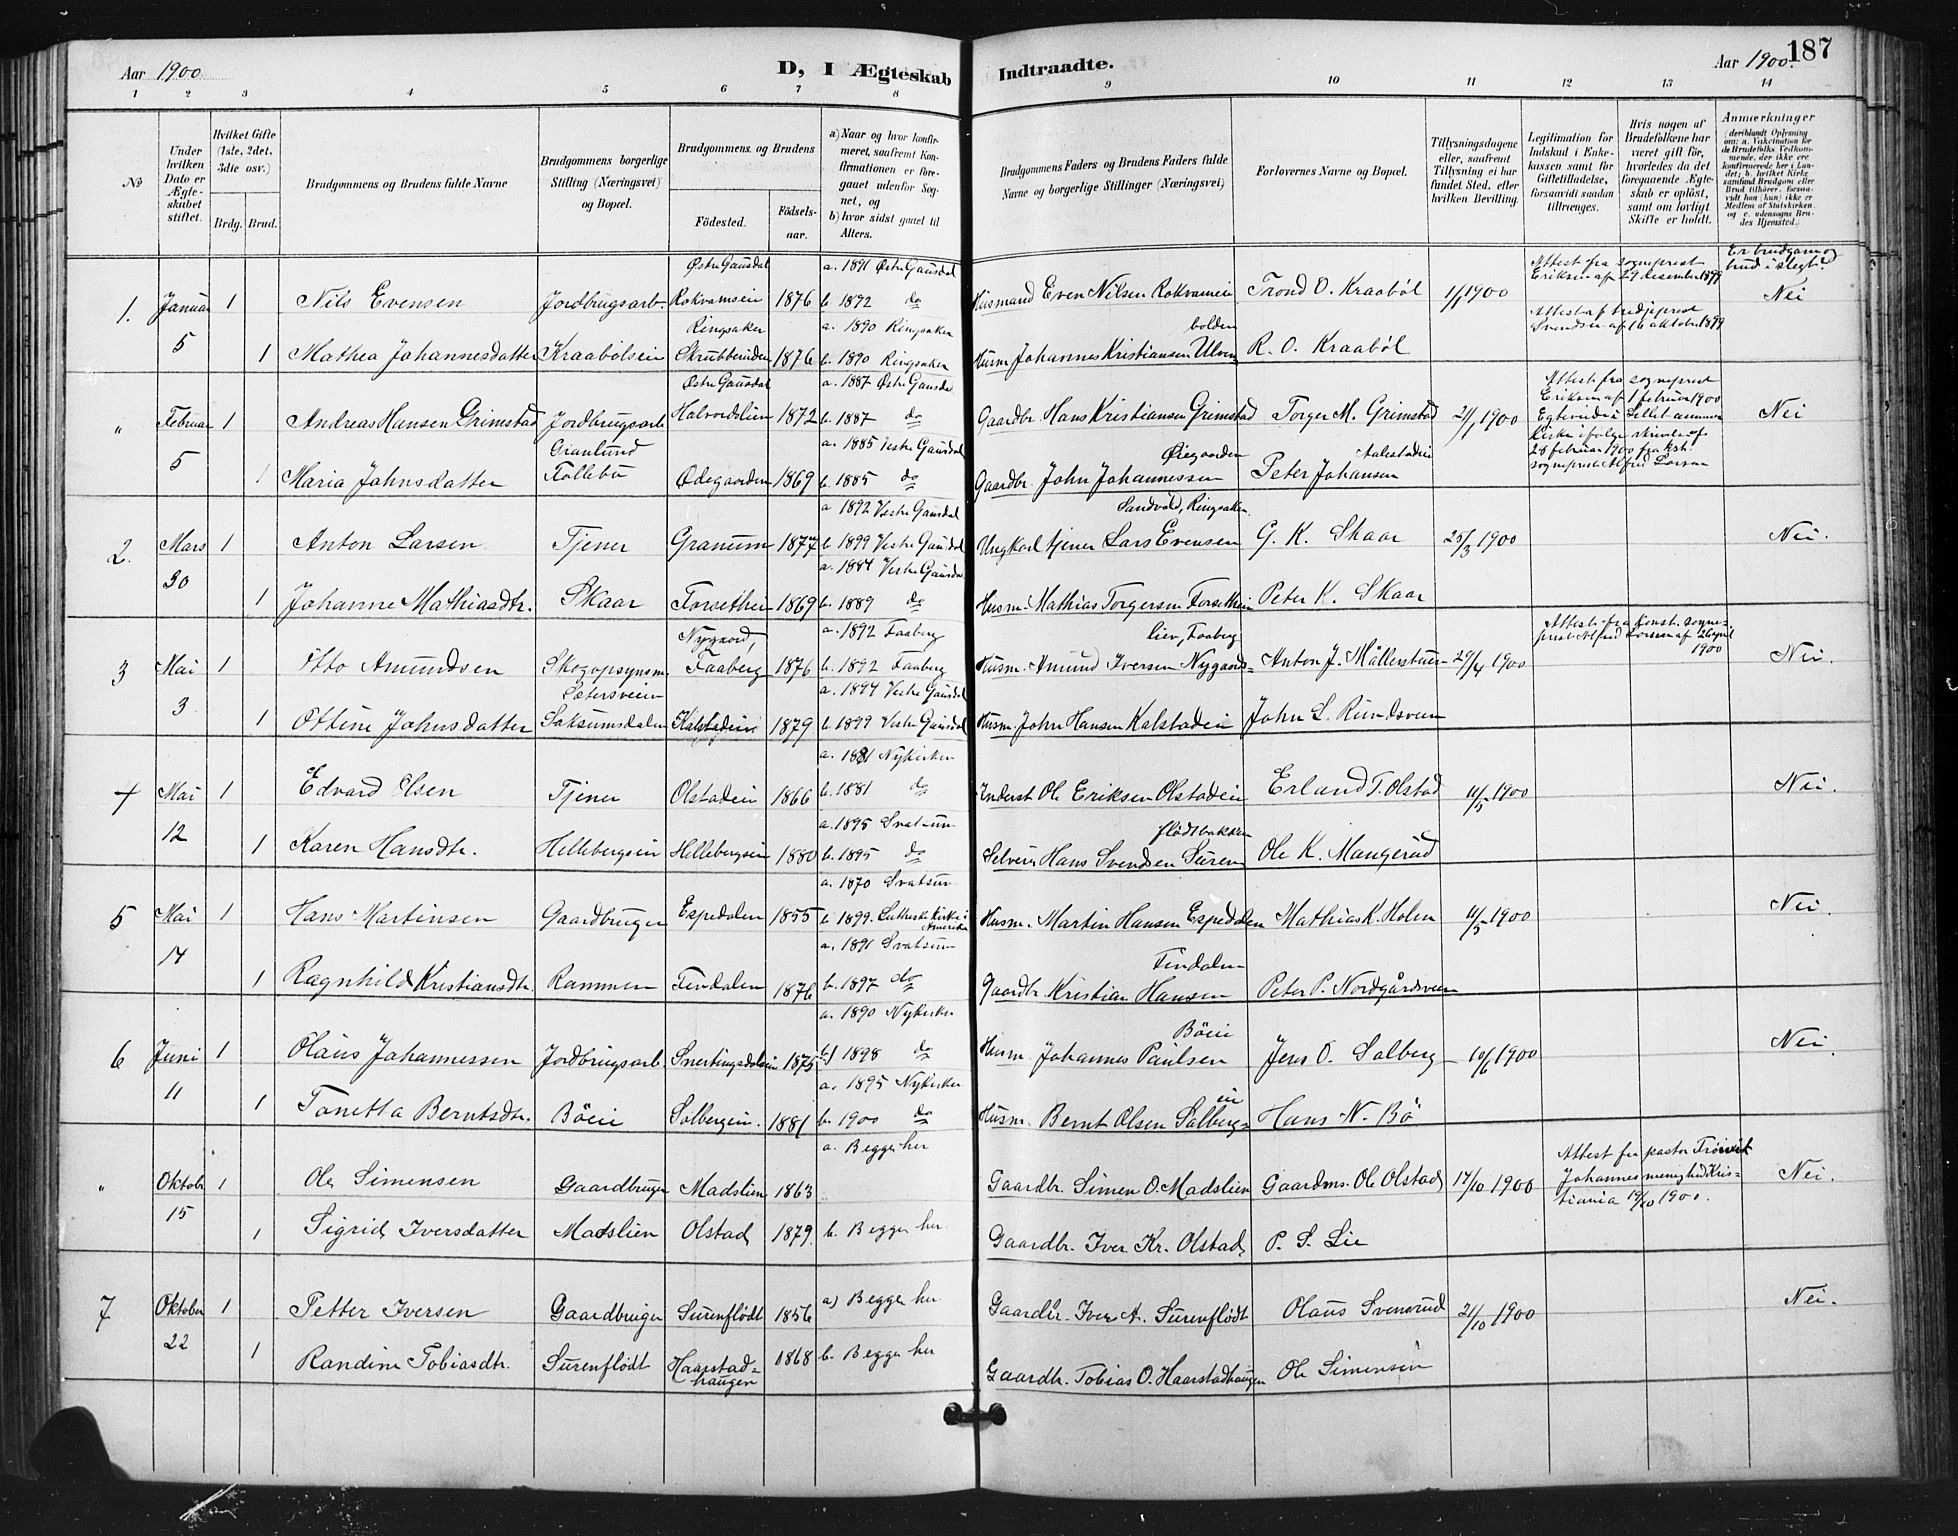 Aar 1900
D, I Ægteskab
Indtraadte.
Aar 1900.
187
1 2 3 4 5 6 7 8 9 10 11 12 13 14
No
Under hvilken Dato er Ægteskabet stiftet.
Hvilket Gifte (1ste, 2det, 3die osv.)
Brdg. Brud.
Brudgommens og Brudens fulde Navne
Brudgommens borgerlige Stilling (Næringsvei) og Bopæl.
Brudgommens og Brudens
Födested.
Födselsaar.
a) Naar og hvor konfirmeret, saafremt Konfirmationen er foregaaet udenfor Sognet, og
b) hvor sidst gaaet til Alters.
Brudgommens Faders og Brudens Faders fulde Navne og borgerlige Stillinger (Næringsvei)
Forlovernes Navne og Bopæl.
Tillysningsdagene eller, saafremt Tillysning ei har fundet Sted, efter hvilken Bevilling.
Legitimation for Indskud i Enkekassen samt for Giftetilladelse, forsaavidt saadan tiltrænges.
Hvis nogen af Brudefolkene har været gift før, hvorledes da det foregaaende Ægteskab er oplöst, samt om lovligt Skifte er holdt.
Anmerkninger (deriblandt Oplysning om: a. Vaccination for de Brudefolks Vedkommende, der ikke ere konfirmerede her i Landet; b. hvilket Kirkesamfund Brudgom eller Brud tilhører, forsaavidt han (hun) ikke er Medlem af Statskirken, og c. udensogns Brudes Hjemsted.)
Er brudgam og brud i slegt?
1. Januar 5 1 Nils Evensen Jordbrugsarb. Østre Gausdal Rokvamseie 1876 a. 1891 Østre Gausdal b. 1892 do Husmand Even Nilsen Rokvameie Trond O. Kraabøl 1/1 1900 Attest fra sogneprest Eriksen af 29 desember 1899 Nei
1 Mathea Johannesdatter Kraabølseie Ringsaker Skrubberuden 1876 a. 1890 Ringsaker b. 1890 Ringsaker Husm. Johannes Kristiansen Ulvenbolden R. O. Kraabøl Attest af tredjeprest Svendsen af 16 oktober 1899
" Februar 5 1 Andreas Hansen Grimstad Jordbrugsarb. Østre Gausdal Halvordslien 1872 a. 1887 Østre Gausdal b. 1887 do Gaardbr. Hans Kristiansen Grimstad Torger M. Grimstad 21/1 1900 Attest fra sogneprest Eriksen af 1 februar 1900 Nei
1 Maria Johnsdatter Granlund Follebu Ødegaarden 1869 a. 1885 Vestre Gausdal b. 1885 do Gaardbr. John Johannessen Øiegaarden Peter Johansen Aalestadeie
2. Mars 30 1 Anton Larsen Tjener Granum 1877 a 1892 Vestre Gausdal b. 1899 Vestre Gausdal Ungkarl tjener Lars Evensen Sandvold, Ringsaker G. K. Skaar 25/3 1900 Nei.
1 Johanne Mathiasdtr. Skaar Forsetheie 1869 a. 1884 Vestre Gausdal b. 1889 do Husm. Mathias Torgersen Forsetheie Peter K. Skaar
3 Mai 3 1 Otto Amundsen Skogopsynsm. Nygaard, Faaberg 1876 a. 1892 Faaberg b. 1892 Faaberg Husm. Amund Iversen Nygaardslien, Faaberg Anton J. Møllerstuen 29/4 1900 Attest fra konst. sogneprest Alfred Larsen af 26 april 1900 Nei.
1 Ottine Johnsdatter Sætersveien Saksumsdalen Kalstadeie 1879 a. 1894 Vestre Gausdal b. 1899 Vestre Gausdal Husm. John Hansen Kalstadeie John L. Rundsveen
4 Mai 12 1 Edvard Olsen Tjener Olstadeie 1866 a. 1881 Nykirken b. 1881 do Inderst Ole Eriksen Olstadeie Erland T. Olstad 11/5 1900 Nei.
1 Karen Hansdtr. Hellebergseie Hellebergseie 1880 a. 1895 Svatsum b. 1895 do Selveier Hans Svendsen Surenflødtbakken Ole K. Mangerud
5 Mai 14 1 Hans Martinsen Gaardbruger Espedalen 1855 a. 1870 Svatsum b. 1899. Lutherske Kirke i Amerika Husm. Martin Hansen Espedalen Mathias K. Holen 11/5 1900 Nei.
1 Ragnhild Kristiansdtr. Rammen Findalen 1876 a. 1891 Svatsum b. 1897 do Gaardbr. Kristian Hansen Findalen Peter P. Nordgårdsveen
6 Juni 11 1 Olaus Johannessen Jordbrugsarb. Snertingsdalen 1875 a. 1890 Nykirken b) 1898 do Husm. Johannes Paulsen Böeie Jens O. Solberg 10/6 1900 Nei.
1 Tonetta Berntsdtr. Böeie Solbergeie. 1881 a. 1895 Nykirken b. 1900 do Husm. Bernt Olsen Solbergeie Hans N. Bö
" Oktobr 15 1 Ole Simensen Gaardbruger Madslien 1863 a. Begge her Gaardbr. Simen O. Madslien Gaardms. Ole Olstad 14/10 1900 Attest fra pastor Johannes menighed Kristiania 19/10 1900. Nei.
1 Sigrid Iversdatter Madslien Olstad 1879. b. Begge her. Gaardbr. Iver Kr. Olstad. P. S. Lie
7 Oktober 22 1 Petter Iversen Gaardbruger Surenflödt 1856 a) Begge her. Gaardbr. Iver A. Surenflödt Olaus Svensrud 21/10 1900 Nei.
1 Randine Tobiasdtr. Surenflödt Haarstadhaugen 1868 b. Begge her Gaardbr. Tobias O. Haarstadhaugen Ole Simensen